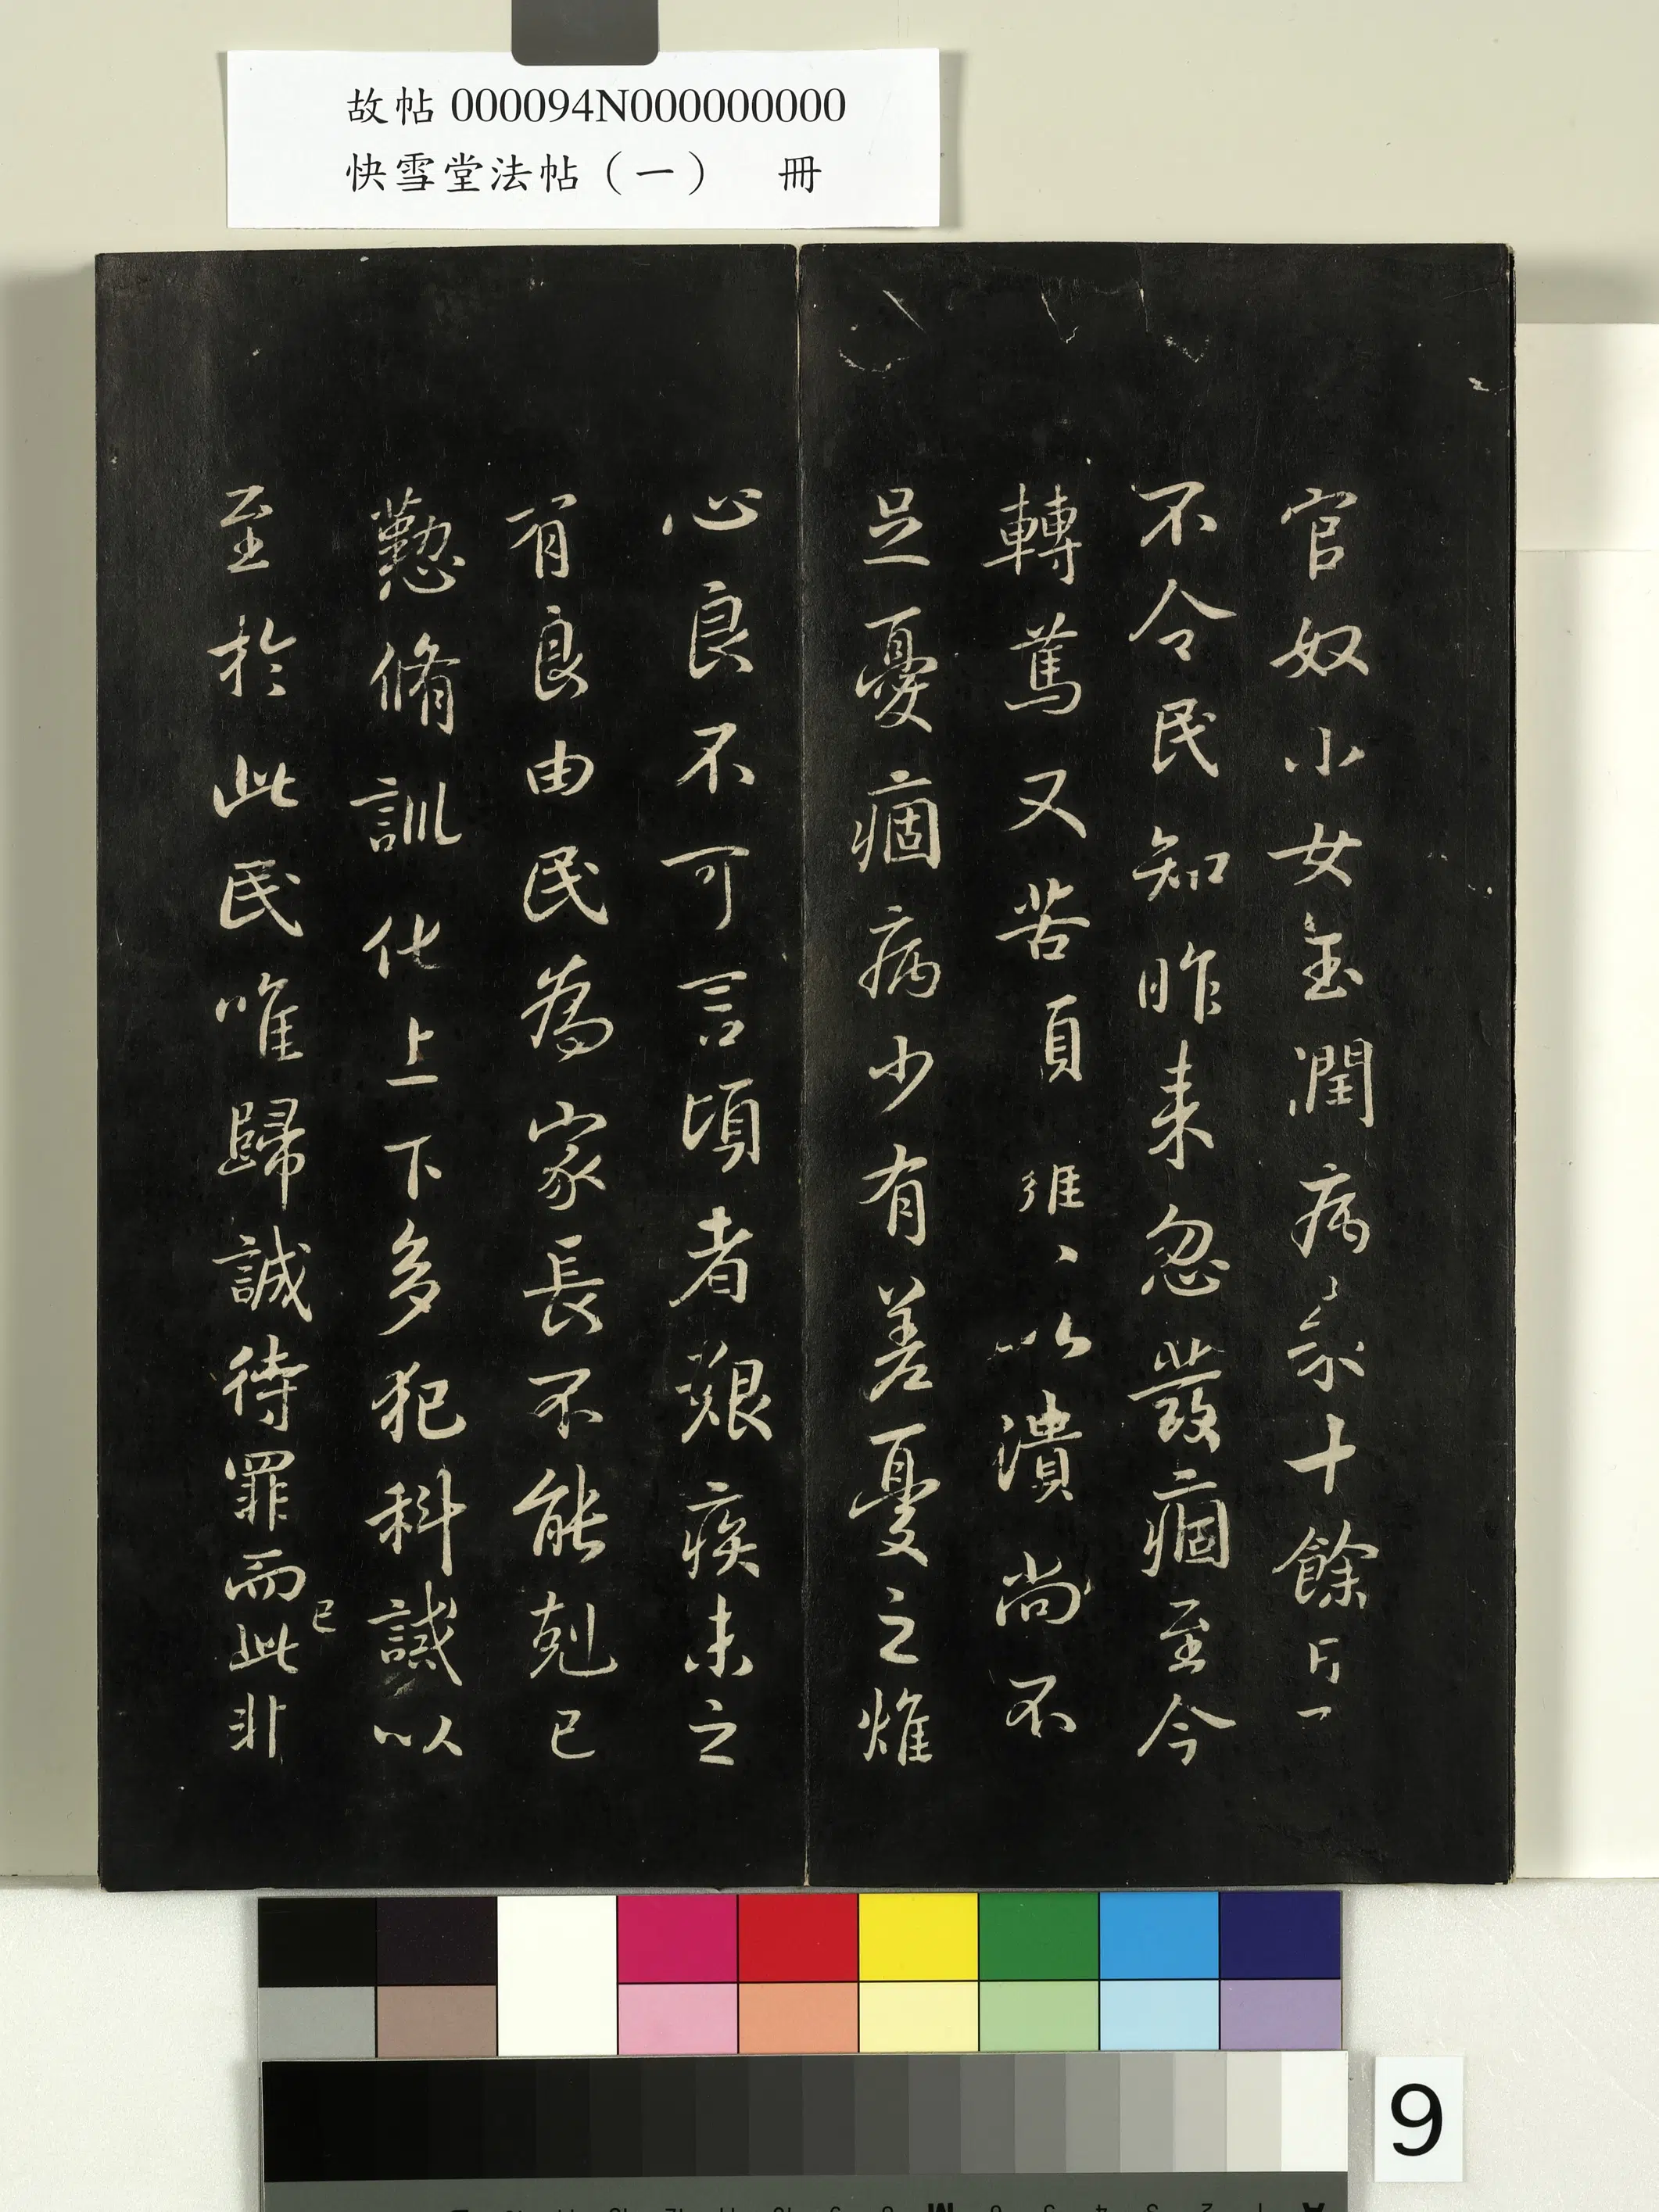 故帖 000094N000000000
快雪堂法帖（一） 冊
官奴小女玉潤病來十餘
不令民知昨来忽發痼至今
轉篤又苦以潰尚不
足憂痼病少有差憂之燋
心良不可言頃者艱疾未之
有良由民為家長不能剋己
懃脩訓化上下多犯科誡以
至於此民唯歸誠待罪而已此非
9